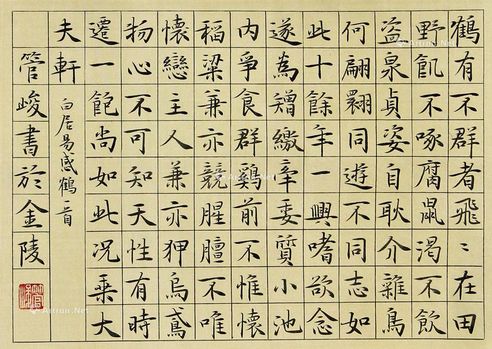 鶴有不群者飛〻在田
野飢不啄腐鼠渴不飲
盗泉貞姿自耿介雜鳥
何翩翾同遊不同志如
此十餘年一興嗜欲念
遂為矰繳牽委質小池
内爭食群鷄前不惟懷
稻粱兼亦競腥膻不唯
懷戀主人兼亦狎烏鳶
物心不可知天性有時
遷一飽尚如此况乗大
夫軒
白居易感鶴一首
管峻書於金陵
Artron.Net